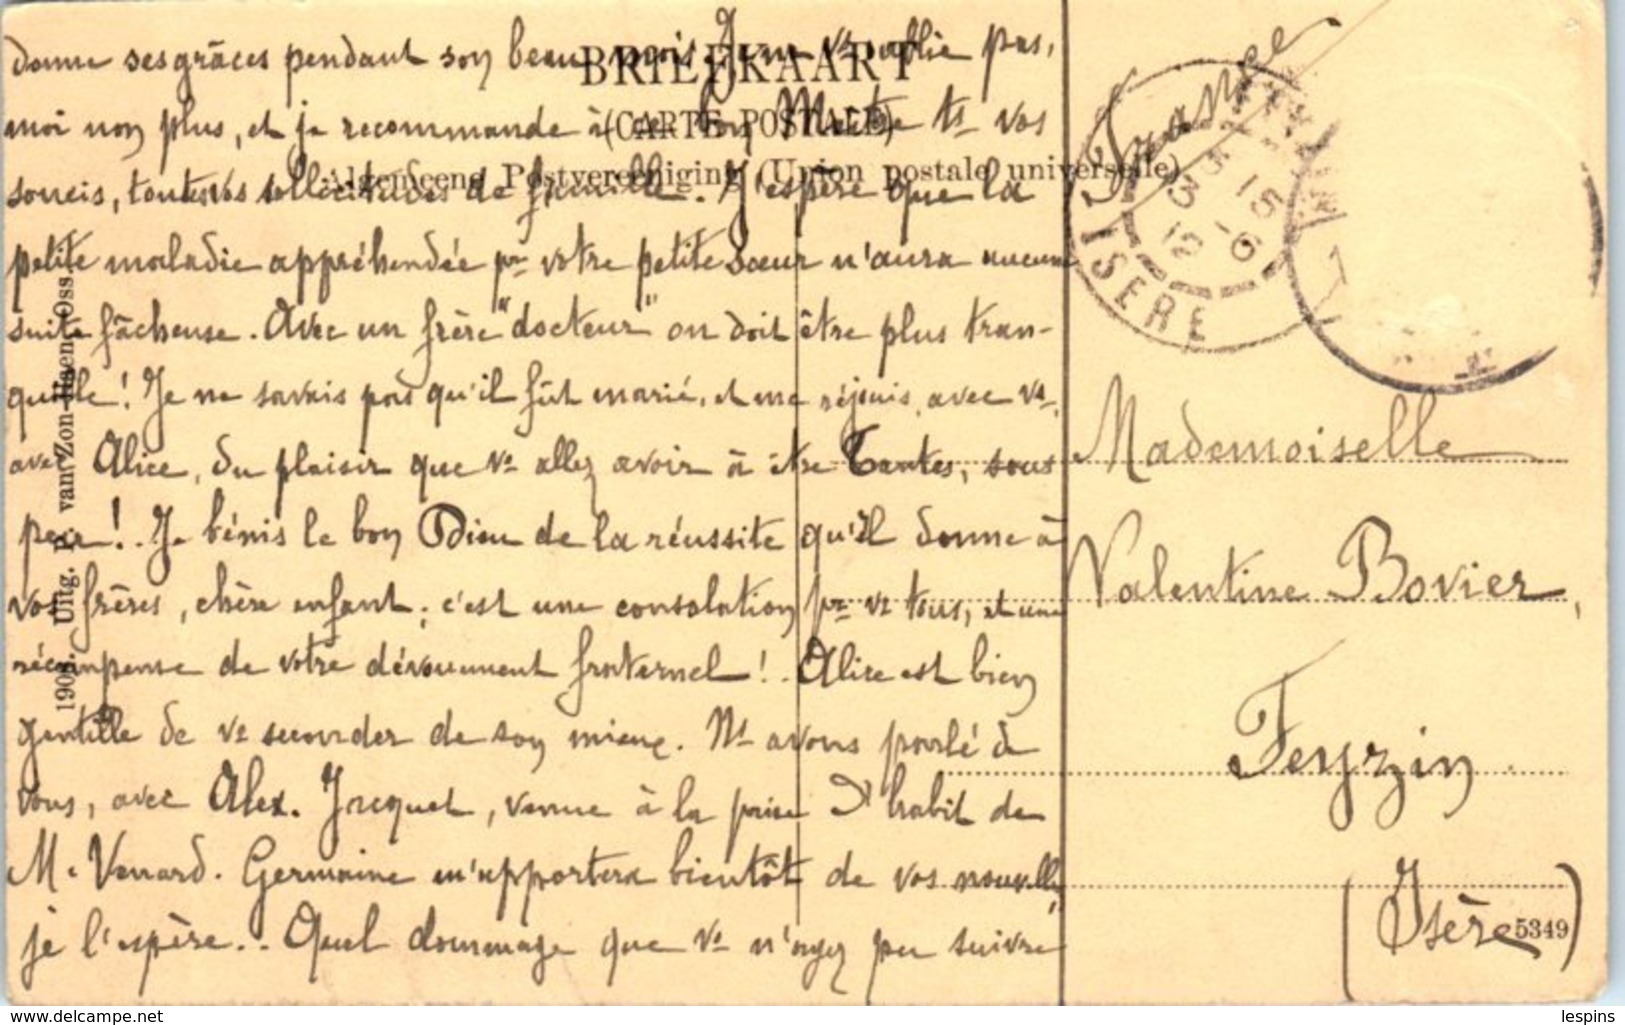 donne ses grâces pendant son beau mois. Je ne vs oublie pas,
moi non plus, et je recommande à ce bon Maître ts vos
soucis, toutes vos sollicitudes de famille. J'espère que la
petite maladie appréhendée pr votre petite sœur n'aura aucune
suite fâcheuse. Avec un frère "docteur" on doit être plus tran-
quille! Je ne savais pas qu'il fût marié, et me réjouis, avec vs,
avec Alice, du plaisir que vs allez avoir à être Tantes, sous
peu!. Je bénis le bon Dieu de la réussite qu'il donne à
vos frères, chère enfant; c'est une consolation pr vs tous, et une
récompense de votre dévouement fraternel!. Alice est bien
gentille de vs seconder de son mieux. Ns avons parlé de
vous, avec Alex. Jacquet, venue à la prise d'habit de
M. Venard. Germaine m'apportera bientôt de vos nouvelles,
je l'espère.. Quel dommage que vs n'ayez pu suivre
BRIEFKAART
(CARTE POSTALE)
Algemeene Postvereeniging (Union postale universelle)
1909. Uitg. P. van Zon-Haenen Oss.
France
15
3 -6
12
ISERE
Mademoiselle
Valentine Bovier,
Feyzin
(Isère)
5349
lespins